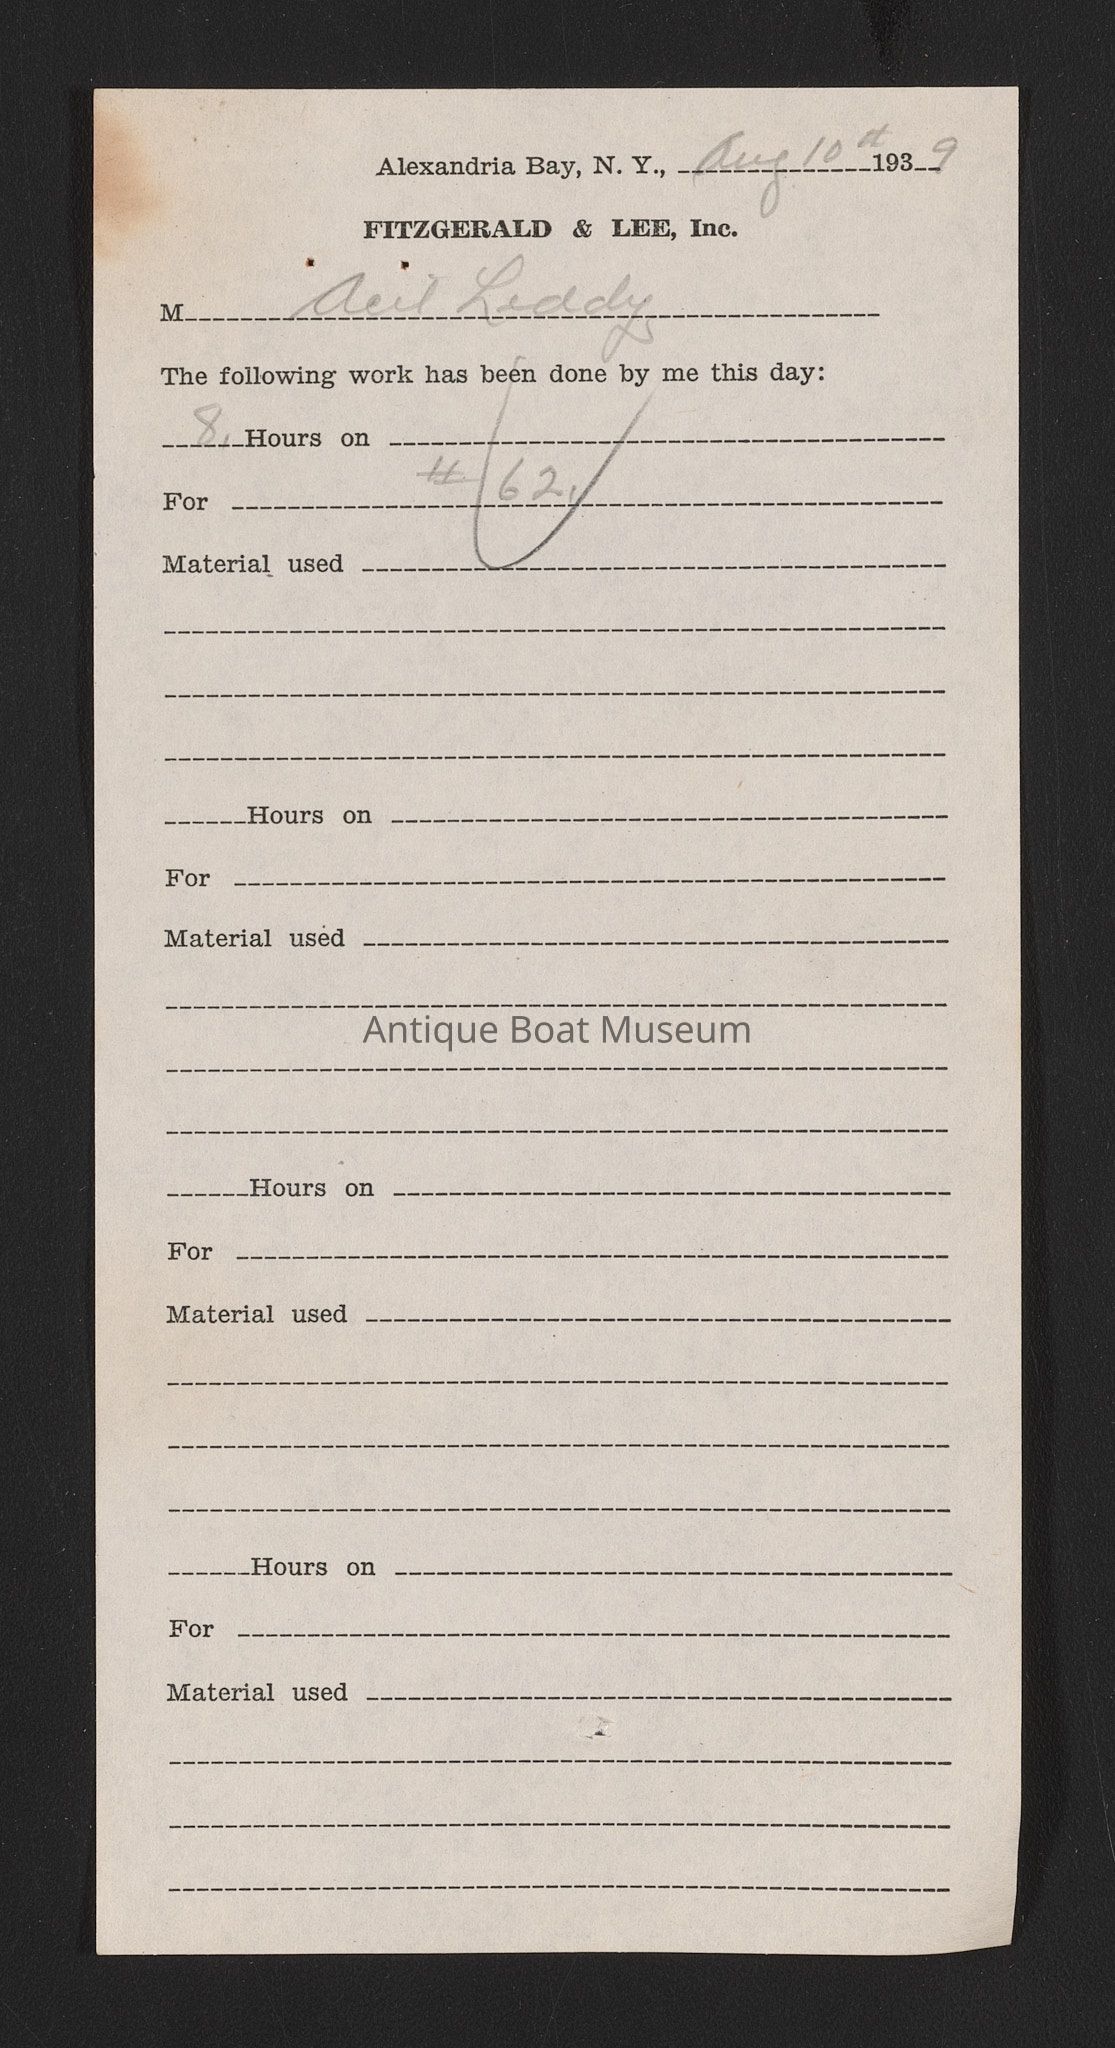 Alexandria Bay, N. Y., Aug 10th 1939
FITZGERALD & LEE, Inc.
M Leddy
The following work has been done by me this day:
8. Hours on
# 62.
For
Material used
Hours on
For
Material used
Antique Boat Museum
Hours on
For
Material used
Hours on
For
Material used